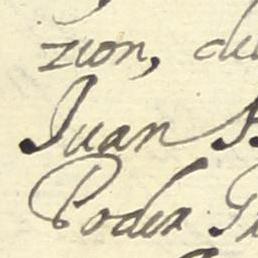 zion, de
Juan
Poder